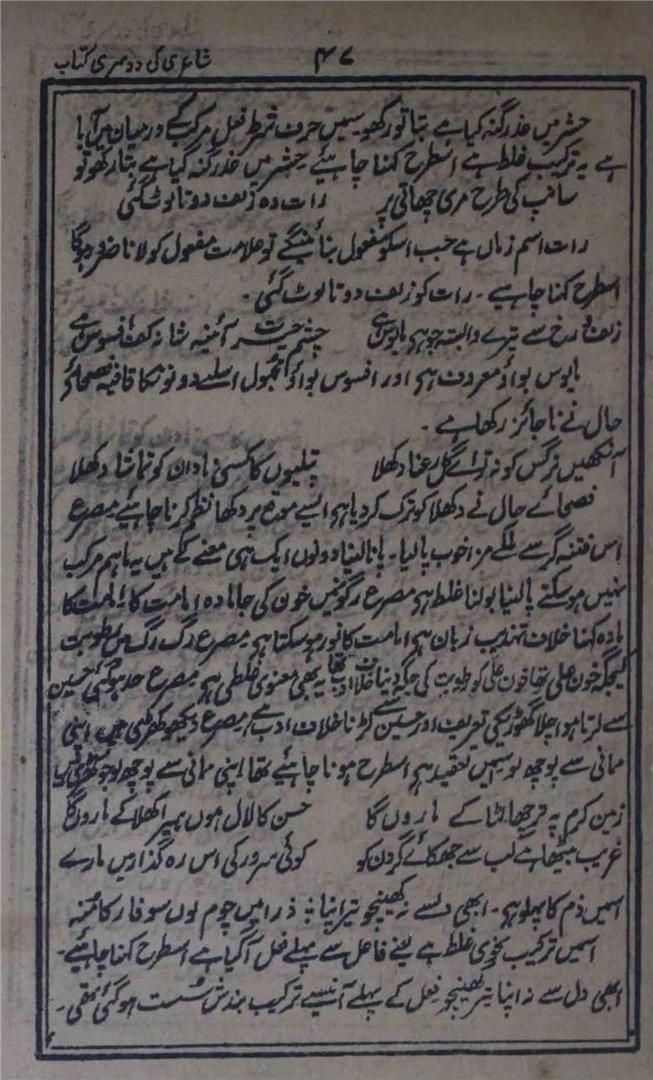 شاعری کی دوسری کتاب ۴۷
حشر میں عذر گنہ کیا ہے بتا تو رکھو اسمیں حرف شرط فعل مرکب کے درمیان میں آیا
ہے یہ ترکیب غلط ہے اسطرح کہنا چاہیئے حشر میں عذر گنہ کیا ہے بتا رکھو تو
سانپ کی طرح مری چھاتی پر رات وہ زلف دوتا لوٹ گئی
رات اسم زماں ہے جب اسکو مفعول بنائینگے تو علامت مفعول کو لانا ضرور ہوگا
اسطرح کہنا چاہیے۔ رات کو زلف دوتا لوٹ گئی۔
زلف و رخ سے ترے وابستہ جو ہم مایوس ہے چشم حیرت آئینہ شانہ کف افسوس ہے
مایوس بواؤ معروف ہے اور افسوس بواؤ مجہول اسلیے دونونکا قافیہ فصحائے
حال نے ناجائز رکھا ہے۔
آنکھیں نرگس کو نہ تو اے گل رعنا دکھلا پتلیوں کا کسی نادان کو تماشا دکھلا
فصحائے حال نے دکھلا کو ترک کردیا ہے ایسے موقع پر دکھا نظم کرنا چاہیئے مصرع
اس فتنہ گر سے ملکے مزا خوب پالیا۔ پانا لینا دونوں ایک ہی معنے کے ہیں یہ باہم مرکب
نہیں ہوسکتے پالینا بولنا غلط ہے مصرع رگونمیں خون کی جا مادہ امامت کا امامت کا
مادہ کہنا خلاف تہذیب زبان ہے امامت کا نور ہوسکتا ہے مصرع رگ رگ میں رطوبت
کیجگہ خون علی تھا خون علی کو رطوبت کی جگہ دینا خلاف ادب تھا یہ بھی معنوی غلطی ہے مصرع حد ہوگئی حسین
سے لڑتا ہوا چلا گھوڑیکی تعریف اور حسین سے لڑنا خلاف ادب ہے مصرع دیکھو کھڑی ہیں اپنی
ممانی سے پوچھ لو اسمیں تعقید ہے اسطرح ہونا چاہیئے تھا اپنی ممانی سے پوچھ لو جو کھڑی ہیں
زمین کرم پہ ترچھا لٹا کے ماروں گا حسن کا لال ہوں ہمپر اکھلا کے ماروں گا
غریب بیٹھا ہے لب سے جھکائے گردن کو کوئی سرور کی اس رہ گذار میں مارے
اسمیں ذم کا پہلو ہے۔ ابھی دلسے نہ کھینچو تیر اپنا پہ ذرا میں چوم لوں سوفار کا منہ
اسمیں ترکیب نحوی غلط ہے یعنے فاعل سے پہلے فعل آگیا ہے اسطرح کہنا چاہیئے۔
ابھی دل سے نہ اپنا تیر کھینچو فعل کے پہلے آنیسے ترکیب بندش سست ہوگئی تھی۔